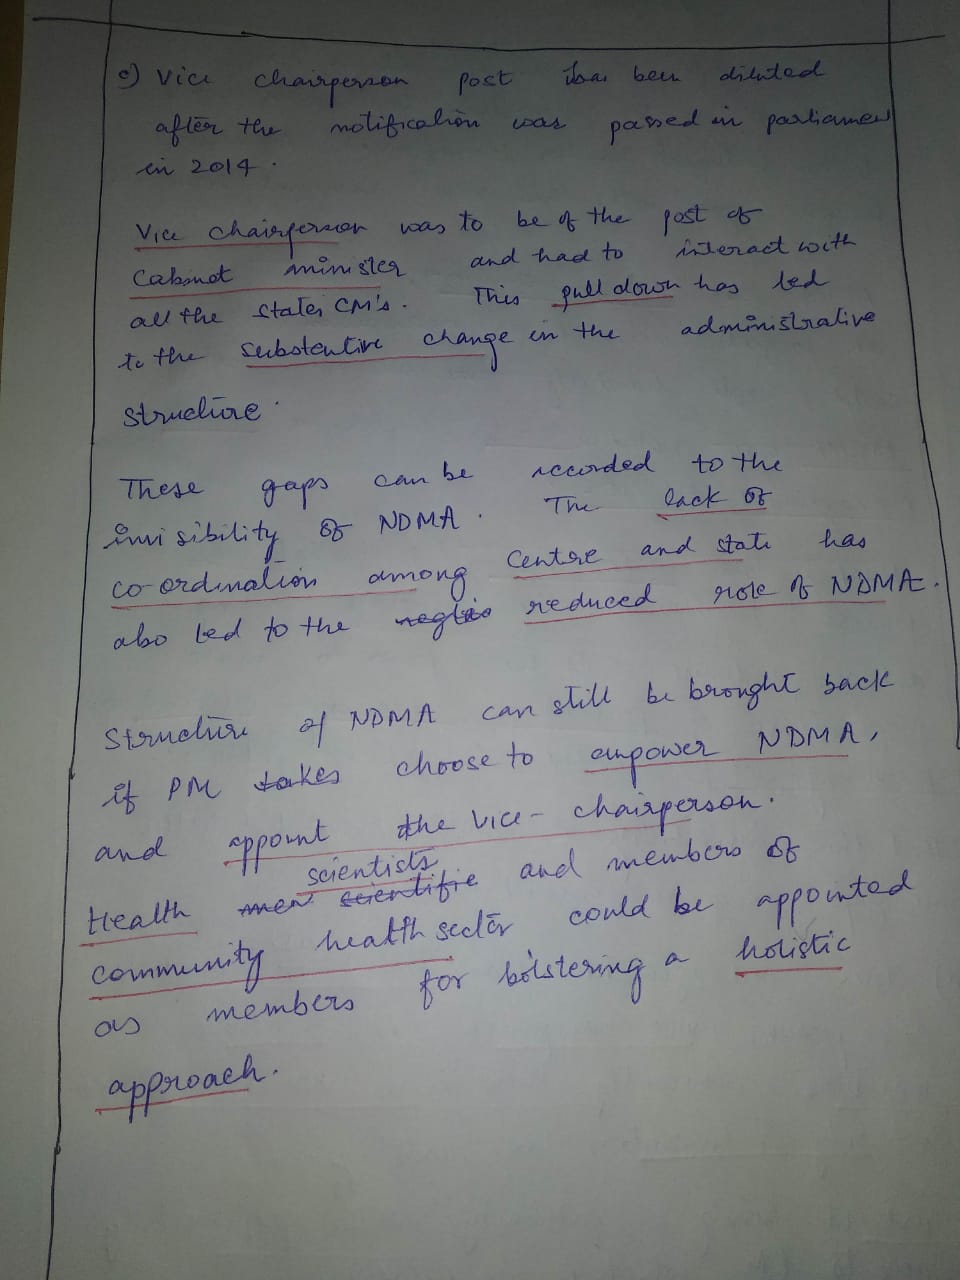 c) Vice chairperson post has been diluted
after the notification was passed in parliament
in 2014.
Vice chairperson was to be of the post of
Cabinet minister and had to interact with
all the states CM's. This pull down has led
to the substentive change in the administrative
structure.
These gaps can be accorded to the
invisibility of NDMA. The lack of
co-ordination among Centre and state has
also led to the reduced role of NDMA.
Structure of NDMA can still be brought back
if PM takes choose to empower NDMA,
and appoint the Vice-chairperson.
scientists
Health men scientific and members of
community health sector could be appointed
as members for bolstering a holistic
approach.